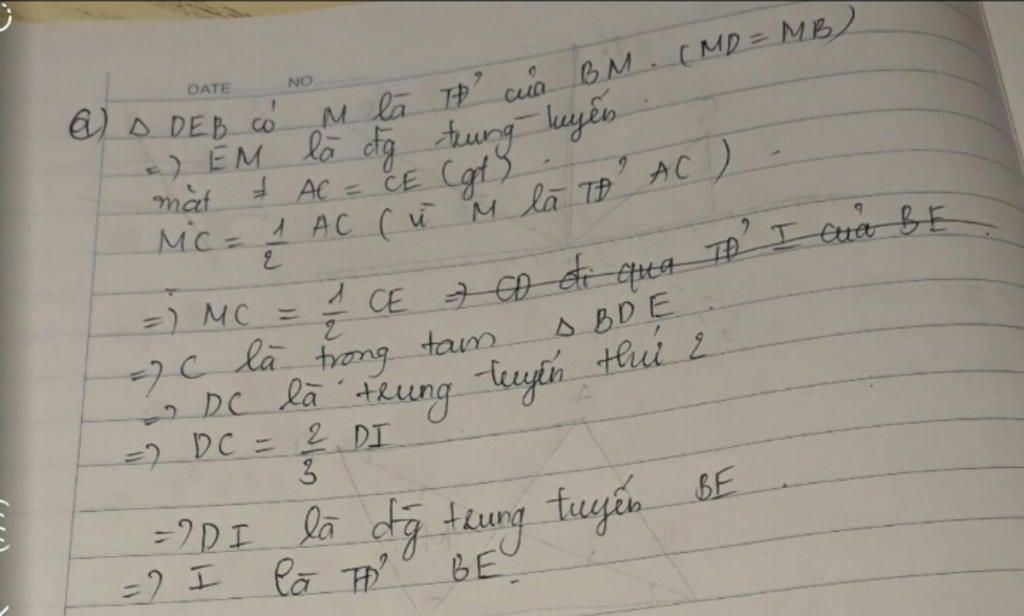 DATE NO
a) Δ DEB có M là TĐ' của BM. (MD = MB)
=> EM là đg trung tuyến.
mặt ≠ AC = CE (gt).
MC = 1/2 AC (vì M là TĐ' AC).
=> MC = 1/2 CE => CD đi qua TĐ' I của BE.
=> C là trong tam Δ BDE.
=> DC là trung tuyến thứ 2
=> DC = 2/3 DI
=> DI là đg trung tuyến BE.
=> I là TĐ' BE.